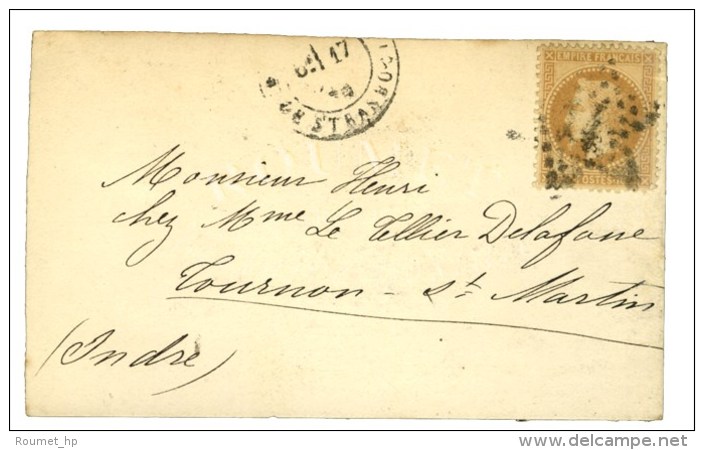 17
DE STRASBOURG
EMPIRE FRANÇAIS
POSTES
Monsieur Henri
chez Mme Le Tellier Delafone
Tournon - St. Martin
(Indre)
Roumet_hp
www.delcampe.net